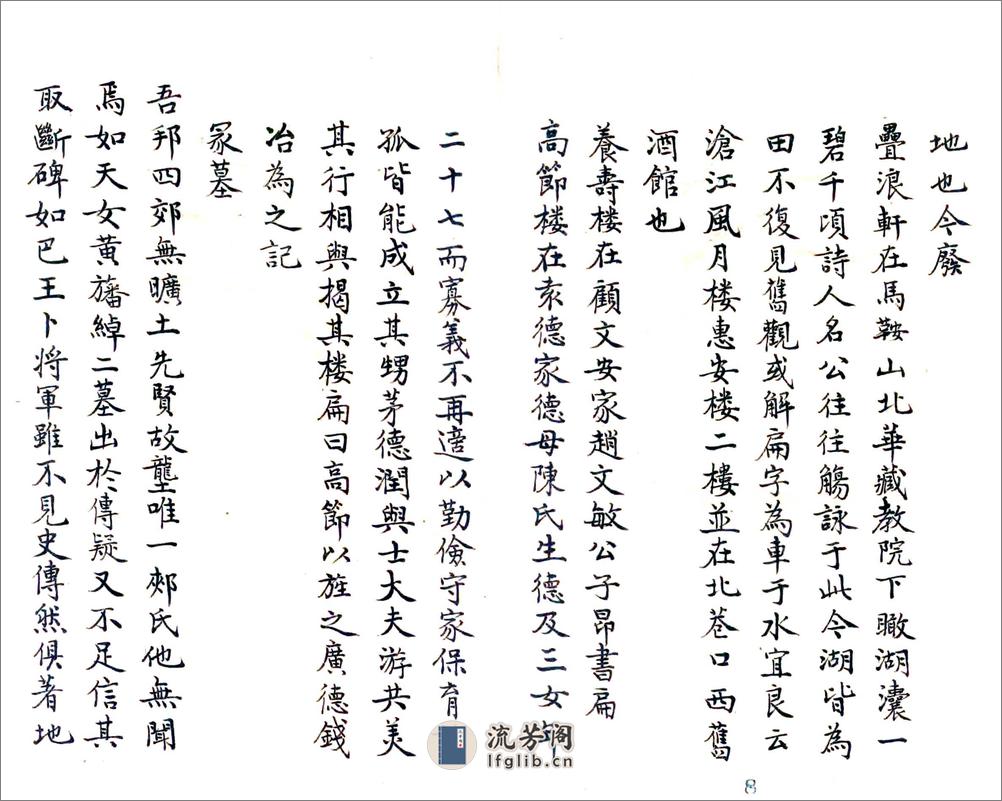 地也今廢
疊浪軒在馬鞍山北華藏教院下瞰湖瀼一
碧千頃詩人名公往往觴詠于此今湖皆為
田不復見舊觀或解扁字為車于水宜良云
滄江風月楼惠安楼二樓並在北巷口西舊
酒館也
養壽楼在顧文安家趙文敏公子昂書扁
高節楼在袁德家德母陳氏生德及三女年
二十七而寡義不再適以勤儉守家保育
孤皆能成立其甥茅德潤與士大夫游共美
其行相與揭其楼扁曰高節以旌之廣德錢
冶為之記
冢墓
吾邦四郊無曠土先賢故壟唯一郟氏他無聞
焉如天女黃旛綽二墓出於傳疑又不足信其
取斷碑如巴王卜將軍雖不見史傳然俱著地
8
流芳阁
lfglib.cn